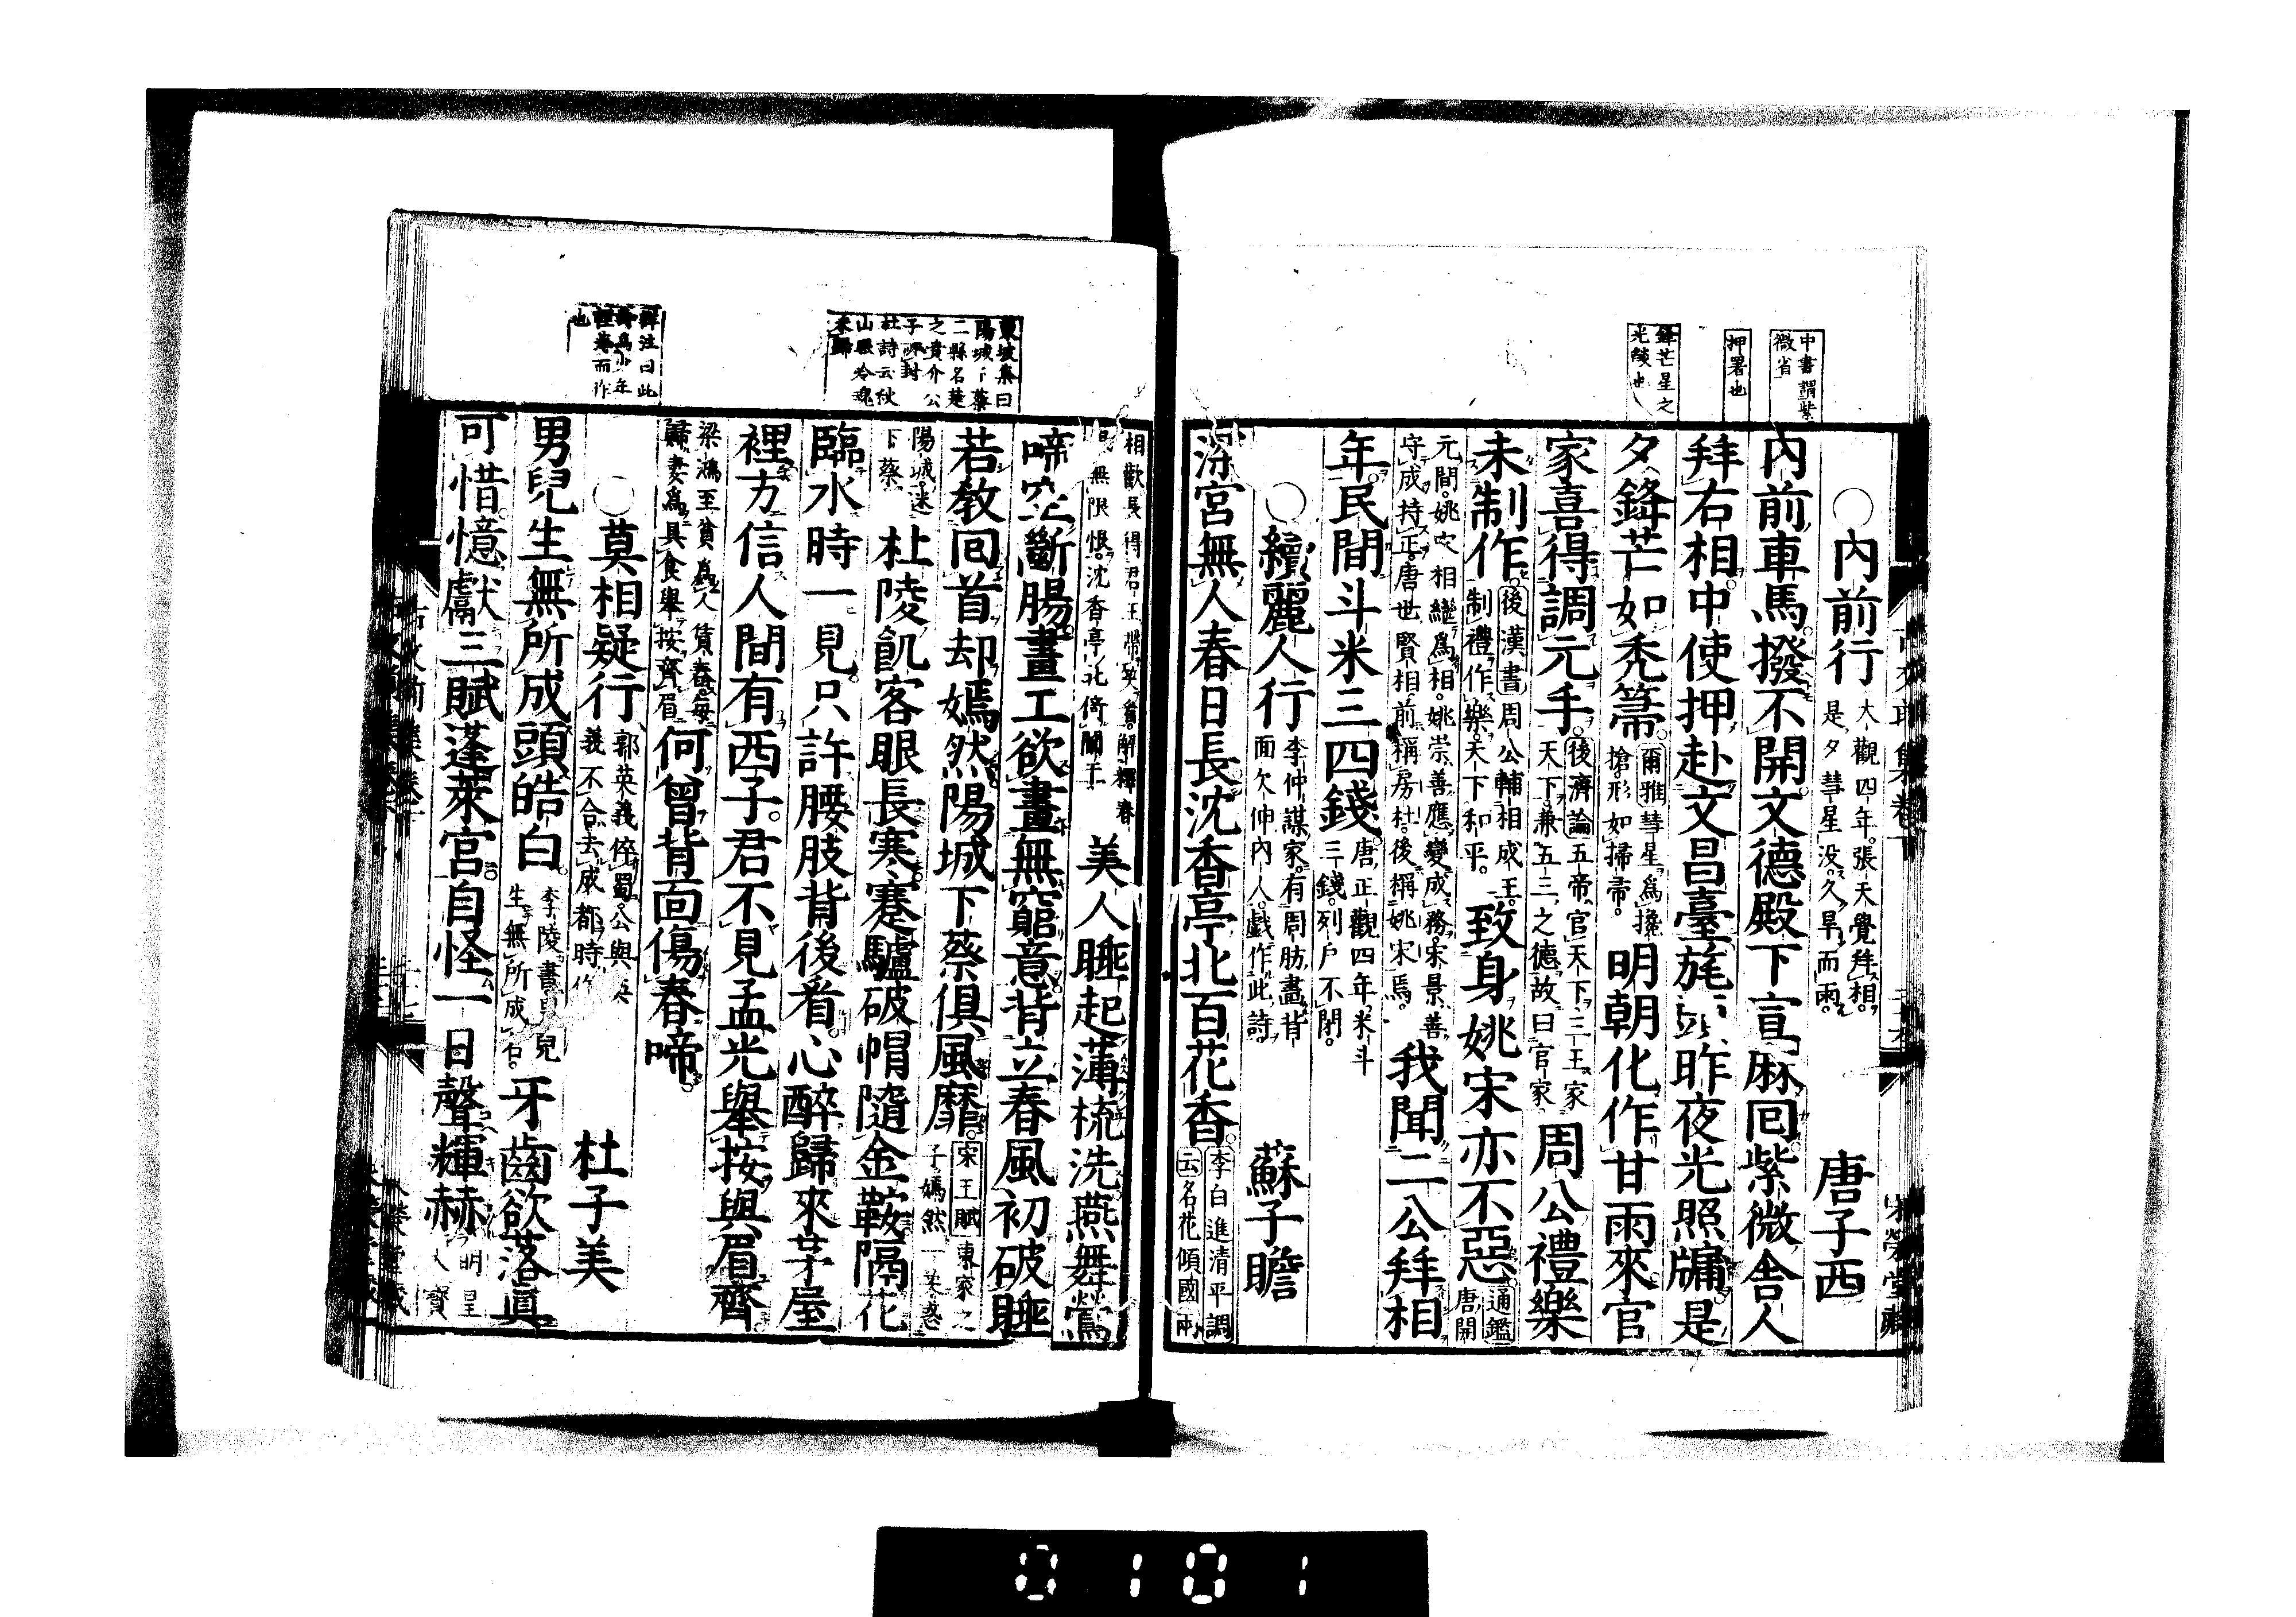 中書謂紫
微省
押署也
鋒芒星之
光燄也
○內前行 大觀四年張天覺拜相
是夕彗星没久旱而雨 唐子西
內前車馬撥不開文德殿下宣麻回紫微舍人
拜右相中使押赴文昌臺旄頭昨夜光照牖是
夕鋒芒如禿箒 爾雅彗星爲攙
搶形如掃帚 明朝化作甘雨來官
家喜得調元手 後濟論五帝官天下三王家
天下兼五三之德故曰官家 周公禮樂
未制作 後漢書周公輔相成王
制禮作樂天下和平 致身姚宋亦不惡 通鑑
唐開
元間姚宋相繼爲相姚崇善應變成務宋景善
守成持正唐世賢相前稱房杜後稱姚宋焉 我聞二公拜相
年民間斗米三四錢 唐正觀四年米斗
三錢列戶不閉
○續麗人行 李仲謀家有周肪畫背
面欠伸內人戯作此詩 蘇子瞻
深宮無人春日長沈香亭北百花香 李白進清平調
云名花傾國兩
東坡集曰
陽城下蔡
二縣名楚
之貴介公
子所封
杜詩云伏
山
相歡長得君王帶笑看解釋春
風無限恨沈香亭北倚闌干 美人睡起薄梳洗燕舞鶯
啼空斷腸畫工欲畫無窮意背立春風初破睡
若教回首却嫣然陽城下蔡俱風靡 宋玉賦東家之
子嫣然一笑惑
陽城迷
下蔡 杜陵飢客眼長寒蹇驢破帽隨金鞍隔花
臨水時一見只許腰肢背後看心醉歸來茅屋
裡方信人間有西子君不見孟光舉按與眉齊
梁鴻至貧爲人賃舂每
歸妻爲具食舉按齊眉 何曾背面傷春啼
○莫相疑行 郭英義倅蜀公與英
義不合去成都時作 杜子美
男兒生無所成頭皓白 李陵書男兒
生無所成名 牙齒欲落眞
可惜憶獻三賦蓬萊宮自怪一日聲輝赫 明皇
寶
0101